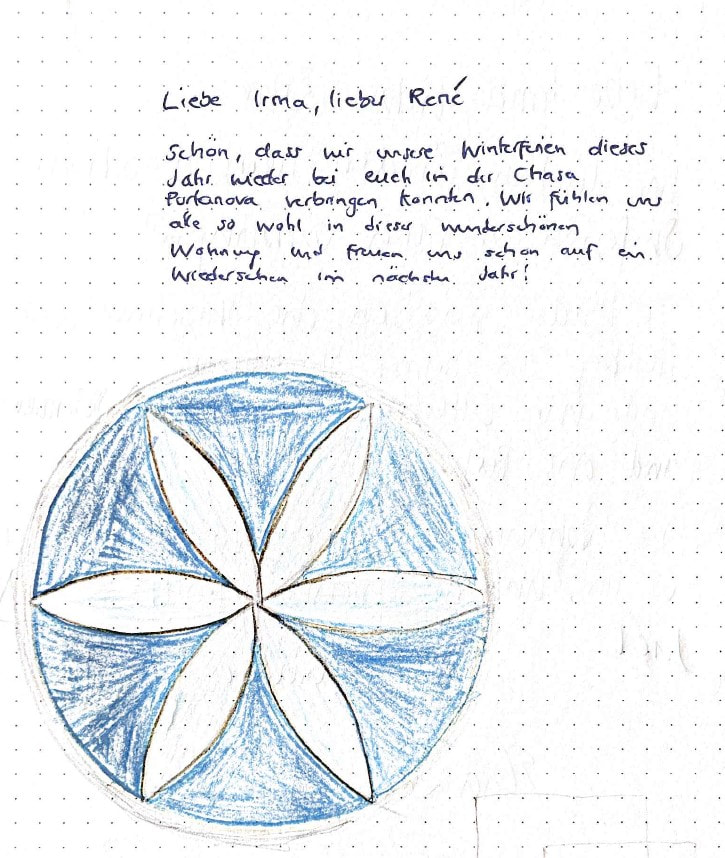 Liebe Irma, lieber René
Schön, dass wir unsere Winterferien dieses
Jahr wieder bei euch in der Chasa
verbringen konnten. Wir fühlen uns
alle so wohl in dieser wunderschönen
Wohnung und freuen uns schon auf ein
Wiedersehen im nächsten Jahr!